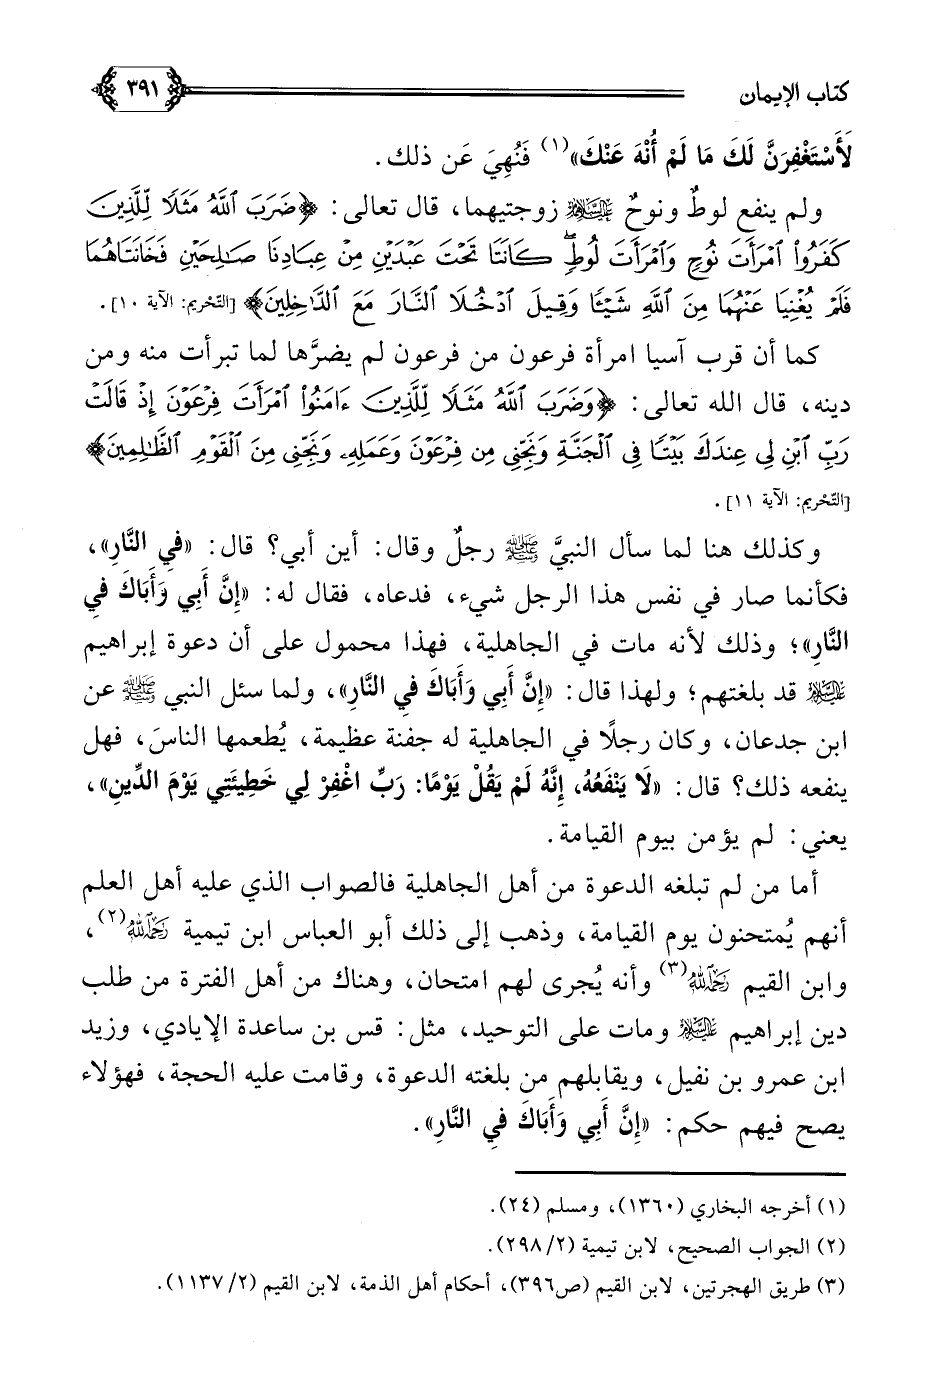 كتاب الإيمان ٣٩١
لَأَسْتَغْفِرَنَّ لَكَ مَا لَمْ أُنْهَ عَنْكَ»(١) فَنُهِيَ عَن ذلك.
ولم ينفع لوطٌ ونوحٌ عليهما السلام زوجتيهما، قال تعالى: ﴿ضَرَبَ ٱللَّهُ مَثَلًا لِّلَّذِينَ
كَفَرُواْ ٱمْرَأَتَ نُوحٍ وَٱمْرَأَتَ لُوطٍۖ كَانَتَا تَحْتَ عَبْدَيْنِ مِنْ عِبَادِنَا صَٰلِحَيْنِ فَخَانَتَاهُمَا
فَلَمْ يُغْنِيَا عَنْهُمَا مِنَ ٱللَّهِ شَيْـًٔا وَقِيلَ ٱدْخُلَا ٱلنَّارَ مَعَ ٱلدَّٰخِلِينَ﴾ [التّحْريم: الآية ١٠].
كما أن قرب آسيا امرأة فرعون من فرعون لم يضرَّها لما تبرأت منه ومن
دينه، قال الله تعالى: ﴿وَضَرَبَ ٱللَّهُ مَثَلًا لِّلَّذِينَ ءَامَنُواْ ٱمْرَأَتَ فِرْعَوْنَ إِذْ قَالَتْ
رَبِّ ٱبْنِ لِي عِندَكَ بَيْتًا فِي ٱلْجَنَّةِ وَنَجِّنِي مِن فِرْعَوْنَ وَعَمَلِهِۦ وَنَجِّنِي مِنَ ٱلْقَوْمِ ٱلظَّٰلِمِينَ﴾
[التّحْريم: الآية ١١].
وكذلك هنا لما سأل النبيَّ ﷺ رجلٌ وقال: أين أبي؟ قال: «فِي النَّارِ»،
فكأنما صار في نفس هذا الرجل شيء، فدعاه، فقال له: «إِنَّ أَبِي وَأَبَاكَ فِي
النَّارِ»؛ وذلك لأنه مات في الجاهلية، فهذا محمول على أن دعوة إبراهيم
عليه السلام قد بلغتهم؛ ولهذا قال: «إِنَّ أَبِي وَأَبَاكَ فِي النَّارِ»، ولما سئل النبي ﷺ عن
ابن جدعان، وكان رجلًا في الجاهلية له جفنة عظيمة، يُطعمها الناسَ، فهل
ينفعه ذلك؟ قال: «لَا يَنْفَعُهُ، إِنَّهُ لَمْ يَقُلْ يَوْمًا: رَبِّ اغْفِرْ لِي خَطِيئَتِي يَوْمَ الدِّينِ»،
يعني: لم يؤمن بيوم القيامة.
أما من لم تبلغه الدعوة من أهل الجاهلية فالصواب الذي عليه أهل العلم
أنهم يُمتحنون يوم القيامة، وذهب إلى ذلك أبو العباس ابن تيمية رحمه الله(٢)،
وابن القيم رحمه الله(٣) وأنه يُجرى لهم امتحان، وهناك من أهل الفترة من طلب
دين إبراهيم عليه السلام ومات على التوحيد، مثل: قس بن ساعدة الإيادي، وزيد
ابن عمرو بن نفيل، ويقابلهم من بلغته الدعوة، وقامت عليه الحجة، فهؤلاء
يصح فيهم حكم: «إِنَّ أَبِي وَأَبَاكَ فِي النَّارِ».
(١) أخرجه البخاري (١٣٦٠)، ومسلم (٢٤).
(٢) الجواب الصحيح، لابن تيمية (٢/ ٢٩٨).
(٣) طريق الهجرتين، لابن القيم (ص٣٩٦)، أحكام أهل الذمة، لابن القيم (٢/ ١١٣٧).